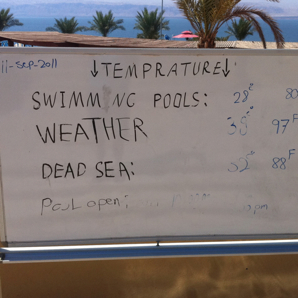 11-Sep-2011
↓TEMPRATURE↓
SWIMMING POOLS: 28°
WEATHER 97F
DEAD SEA: 32° 88F
Pool open: pm